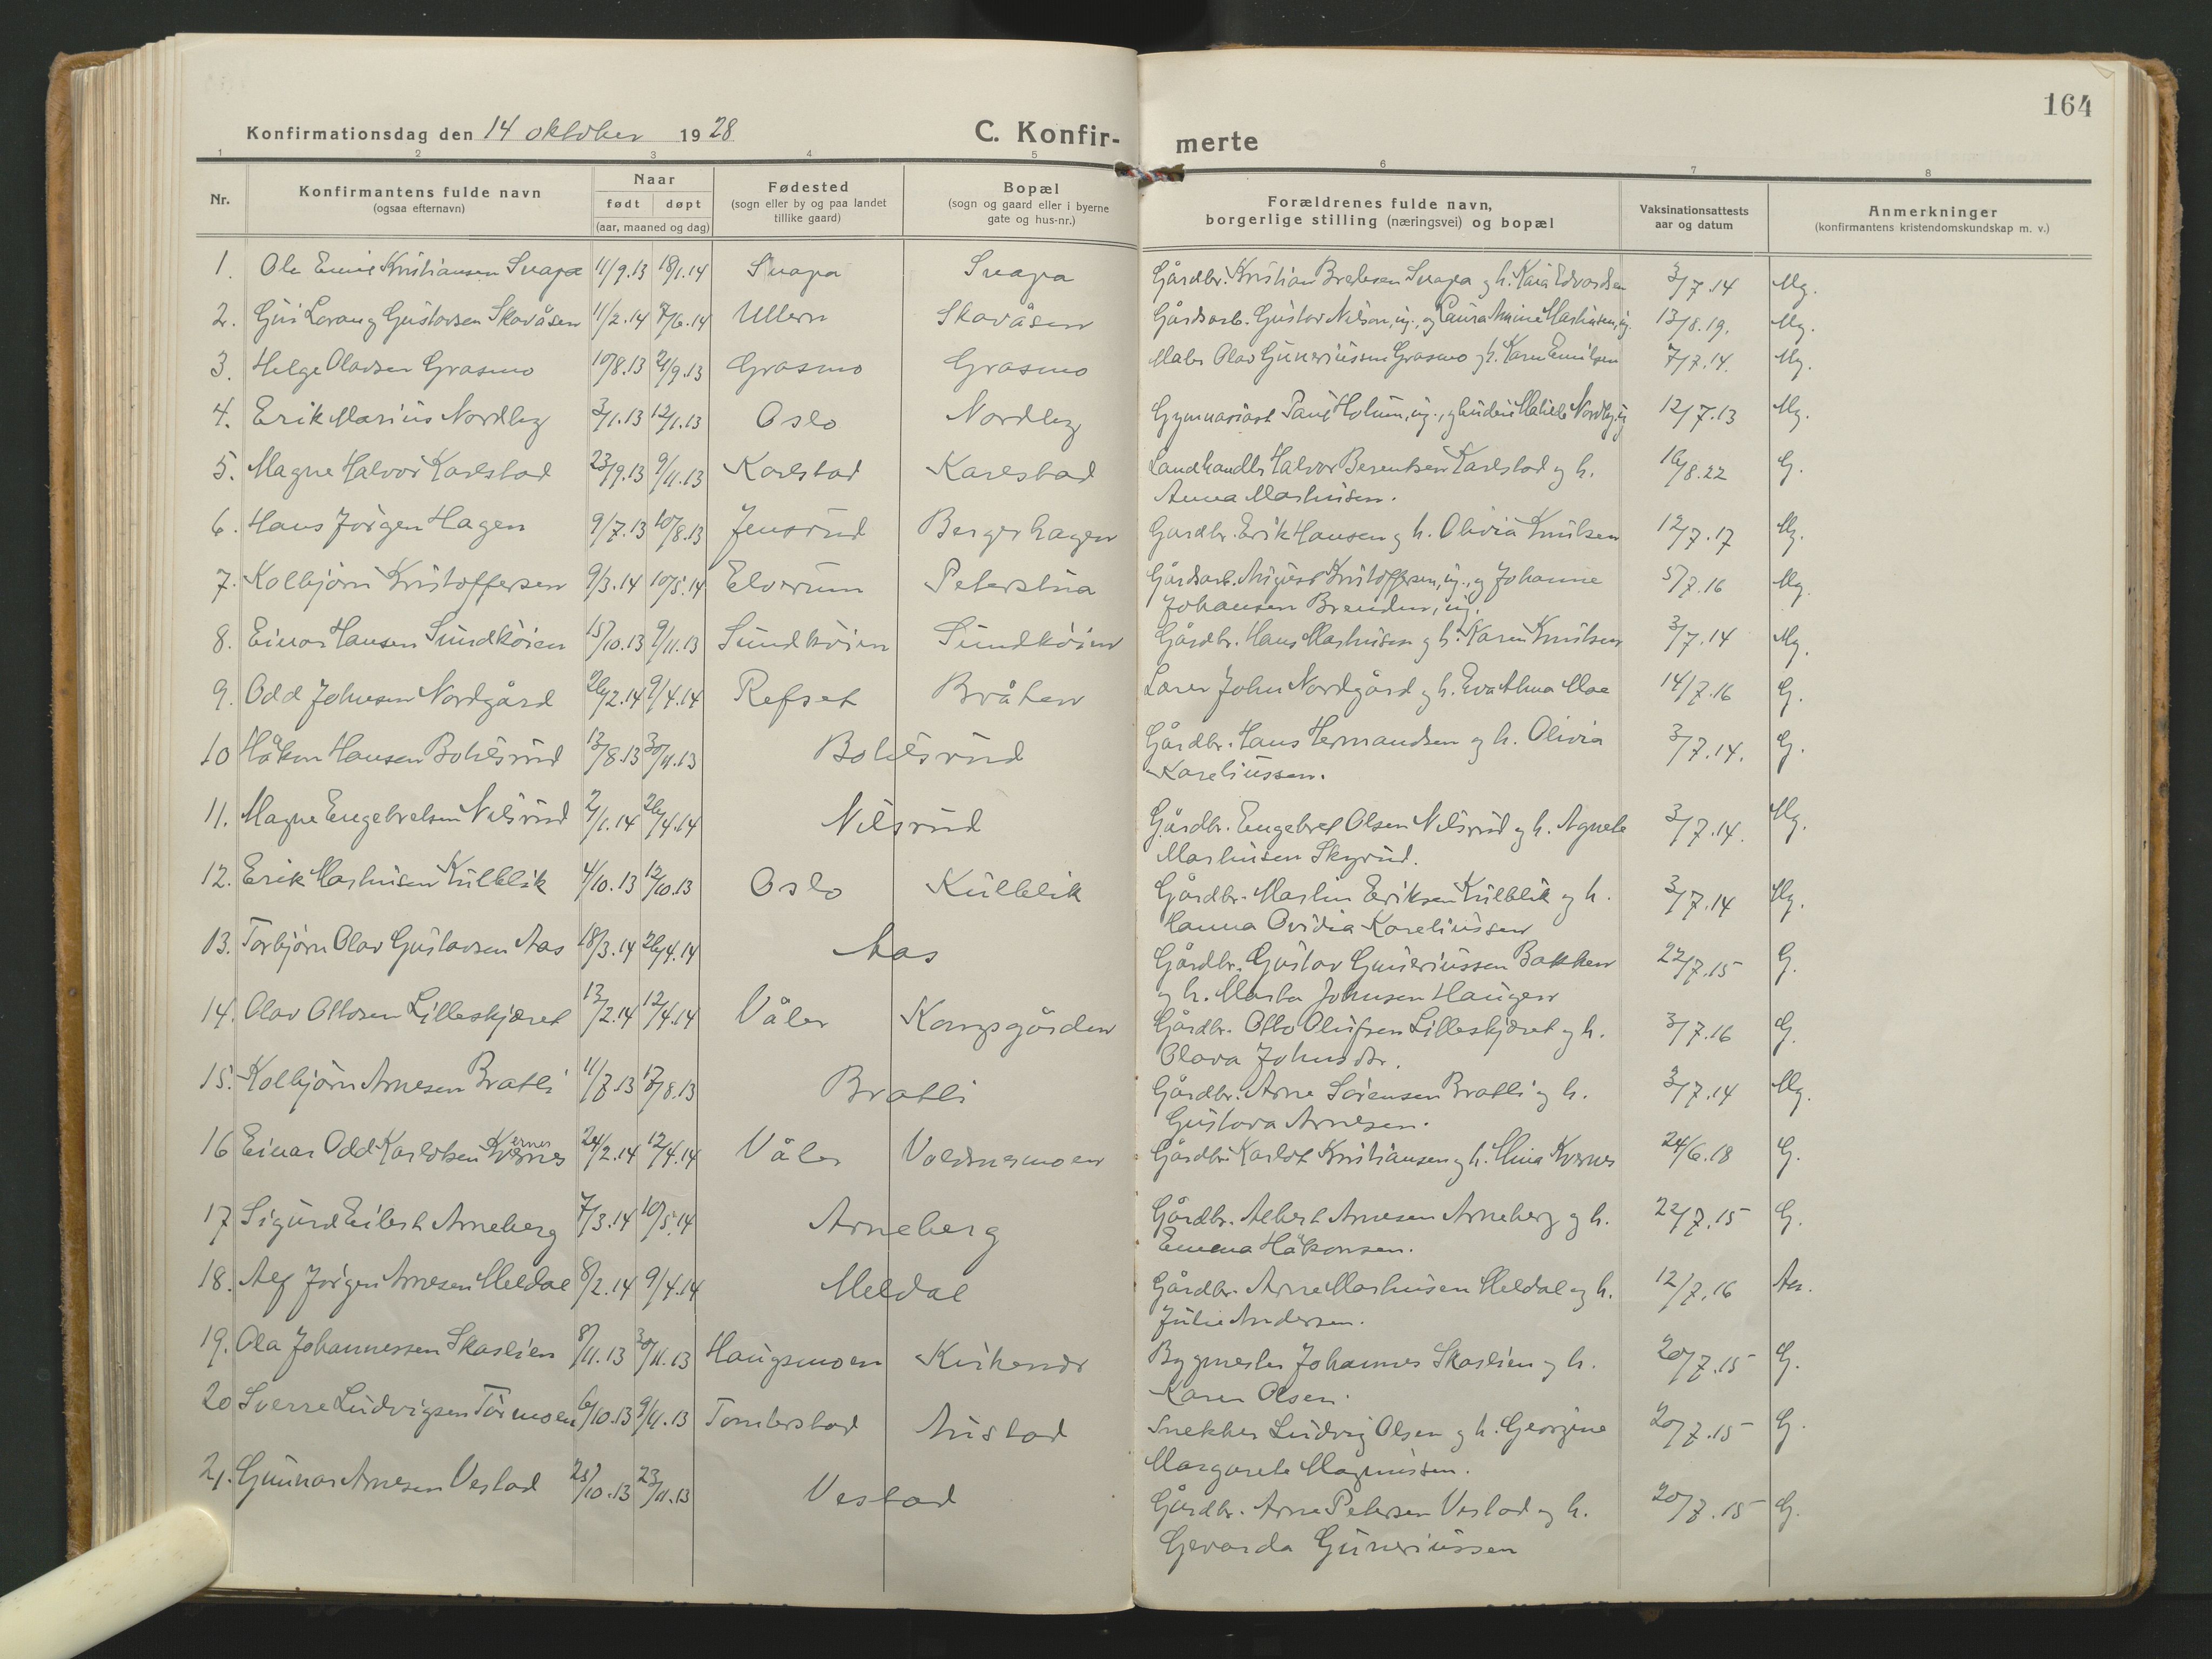 164
Konfirmationsdag den 14 oktober 1928
C. Konfir-
merte
1 2 3 4 5 6 7 8
Nr.
Konfirmantens fulde navn
(ogsaa efternavn)
Naar
født døpt
(aar, maaned og dag)
Fødested
(sogn eller by og paa landet
tillike gaard)
Bopæl
(sogn og gaard eller i byerne
gate og hus-nr.)
Forældrenes fulde navn,
borgerlige stilling (næringsvei) og bopæl
Vaksinationsattests
aar og datum
Anmerkninger
(konfirmantens kristendomskundskap m. v.)
1. Ole Emil Kristiansen 11/9.13 18/1.14 Gårdbr. Kristian og h. 3/7.14 Mg.
2. Gustavsen Skavåsen 11/2.14 7/6.14 Ullern Skavåsen Gårdsarb. Gustav Nilsen, ug., og Laura Mathisen, ug. 13/8.19. Mg.
3. Helge Olavsen Grasmo 10/8.13 21/9.13 Grasmo Grasmo Maler Olav Guneriussen Grasmo og h. Karen Emilsen 7/7.14. Mg.
4. Erik Marius Nordby 3/1.13 12/1.13 Oslo Nordby Gymnasiast Paul Holum, ug., og Nordby, ug 12/7.13 Mg.
5. Magne Halvor Karlstad 23/9.13 9/11.13 Karlstad Karlstad Landhandler Halvor Berentsen Karlstad og h.
Anna Mathisen. 16/8.22 G.
6. Hans Jörgen Hagen 9/7.13 10/8.13 Jensrud Bergerhagen Gardbr. Erik Hansen og h. Olivia Knutsen 12/7.17 Mg.
7. Kolbjörn Kristoffersen 9/3.14 10/5.14 Elverum Peterstua Gårdsarb. August Kristoffersen, ug., og Johanne
Johansen Brenden, ug. 5/7.16 Mg.
8. Einar Hansen Sundköien 15/10.13 9/11.13 Sundköien Sundköien Gårdbr. Hans Mathisen og h. Karen Knutsen 3/7.14 Mg.
9. Odd Johnsen Nordgård 26/2.14 9/4.14 Refset Bråten Lærer John Nordgård og h. Eva Moe 14/7.16 G.
10 Håkon Hansen Bolilsrud 13/8.13 30/11.13 Bolilsrud Gårdbr. Hans Hermandsen og h. Olivia
Kareliussen. 3/7.14. G.
11. Magne Engebretsen Nilsrud 2/1.14 26/4.14 Nilsrud Gårdbr. Engebret Olsen Nilsrud og h. Agnete
Mathisen Skyrud. 3/7.14. Mg.
12. Erik Mathisen Kulblik 4/10.13 12/10.13 Oslo Kulblik Gårdbr. Martin Eriksen Kulblik og h.
Hanna Ovidia Kareliussen 3/7.14 Mg.
13. Torbjörn Olav Gustavsen Aas 18/3.14 26/4.14 Aas Gårdbr. Gustav Guneriussen Bakken
og h. Marta Johnsen Haugen 22/7.15 G.
14. Olav Ottosen Lilleskjæret 13/2.14 12/4.14 Våler Kongsgården Gårdbr. Otto Olufsen Lilleskjæret og h.
Olava Johnsdtr. 3/7.16 G.
15. Kolbjörn Arnesen Bratli 11/7.13 17/8.13 Bratli Gårdbr. Arne Sörensen Bratli og h.
Gustava Arnesen. 3/7.14 Mg.
16 Einar Odd Karlotsen Kvernes 24/2.14 12/4.14 Våler Voldnesmoen Gårdbr. Karlot Kristiansen og h. Mina Kvernes 24/6.18 G.
17 Sigurd Eilert Arneberg 7/3.14 10/5.14 Arneberg Gårdbr. Albert Arnesen Arneberg og h.
Emma Håkonsen. 22/7.15 G.
18. Alf Jörgen Arnesen Meldal 8/2.14 9/4.14 Meldal Gårdbr. Arne Mathisen Meldal og h.
Julie Andersen. 12/7.16
19. Ola Johannessen Skaslien 8/11.13 30/11.13 Haugsmoen Bygmester Johannes Skaslien og h.
Karen Olsen. 20/7.15 G.
20 Sverre Ludvigsen Törmoen 6/10.13 9/11.13 Tomterstad Austad Snekker Ludvig Olsen og h. Georgine
Margarete Magnussen. 20/7.15 G.
21. Gunnar Arnesen Vestad 25/10.13 23/11.13 Vestad Gårdbr. Arne Petersen Vestad og h.
Gevarda Guneriussen 20/7.15 G.